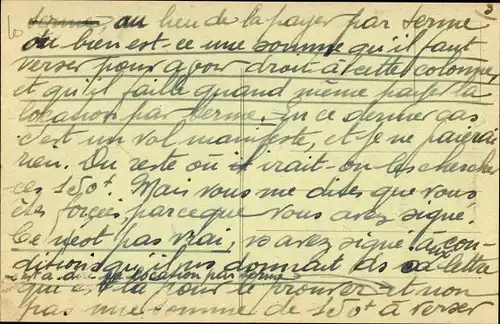 terme, au lieu de la payer par terme
ou bien est-ce une somme qu'il faut
verser pour avoir droit à cette colonne
et qu'il faille quand même payer la
location par terme. En ce dernier cas
c'est un vol manifeste, et je ne paierai
rien. Du reste où irait-on les chercher
ces 150f. Mais vous me dites que vous
êtes forcées, parceque vous avez signé.
Ce n'est pas vrai, vs avez signé aux con-
ditions qu'il vs donnait ds sa lettre
de location par terme
qui est là pour le prouver et non
pas une somme de 150f à verser